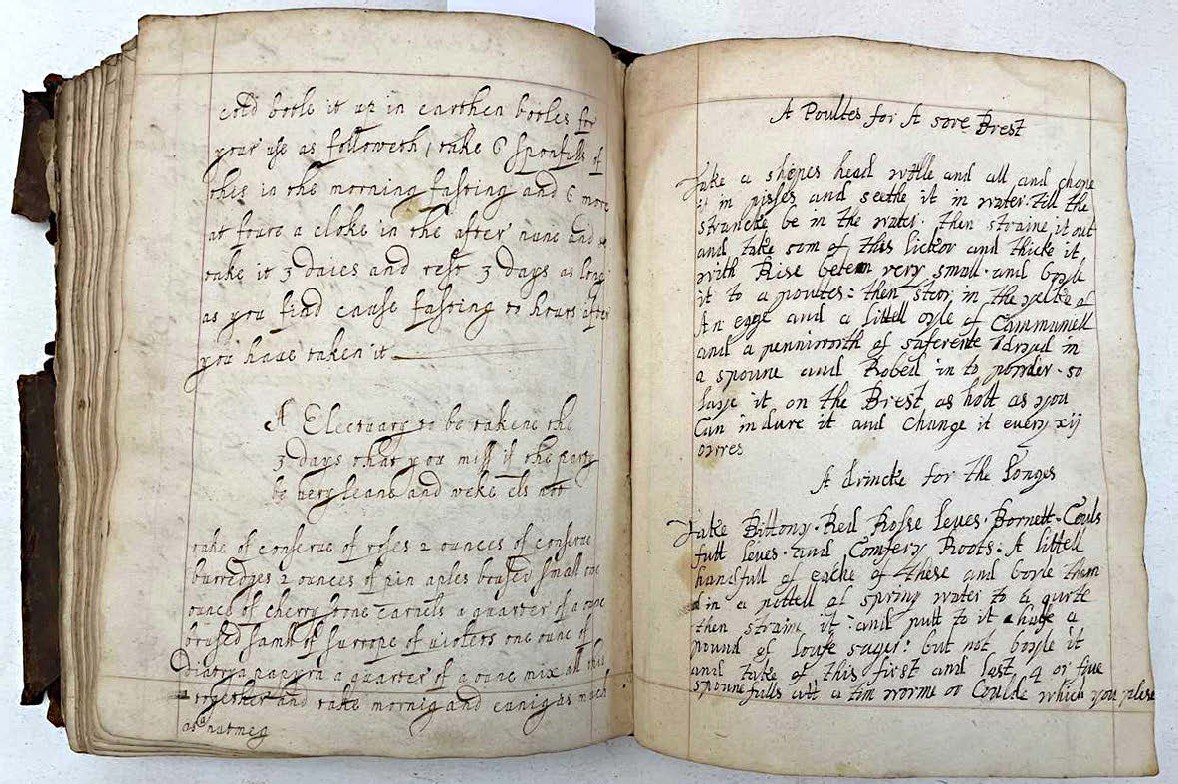 cold botle it up in earthen botles for
your use as followeth / take 6 sponfulls of
this in the morning fasting and 6 more
at foure a cloke in the after nune and
take it 3 daies and rest 3 days as long
as you find cause fasting to hours after
you haue taken it
A Electuary to be takene the
3 days that you miss if the party
be very leane and weke els not
take of conserue of roses 2 ounces of conserue
burredges 2 ounces of pin aples brused small one
ounce of cherry stone carnels a quarter of a ounc
brused small of surrope of violets one ounc of
a quarter of a ounc mix all this
together and take mornig and eanig as much
as a nutmeg
A Poultes for A sore Brest
Take a shepes head wolle and all and chope
it in pisses and seethe it in water till the
strancke be in the water then straine it out
and take som of this lickor and thicke it
with Rise beten very small and boyle
it to a poultes: then steor in the yelke of
An egge and a littell oyle of Cammamell
and a penniworth of saferene dryed in
a spoune and Robed in to powder so
laye it on the Brest as hott as you
Can indure it and change it every xij
owres
A drincke for the Longes
Take Bittony Red Rosse leues Bornett Couls
futt leues and Comfery Roots: A littell
handfull of eache of these and boyle them
in a pottell of spring water to a quarte
then strain it and putt to it a halfe a
pound of loufe suger: but not boyle it
and take of this first and last 4 or fiue
spounefulls att a tim worme or Coulde which you plese